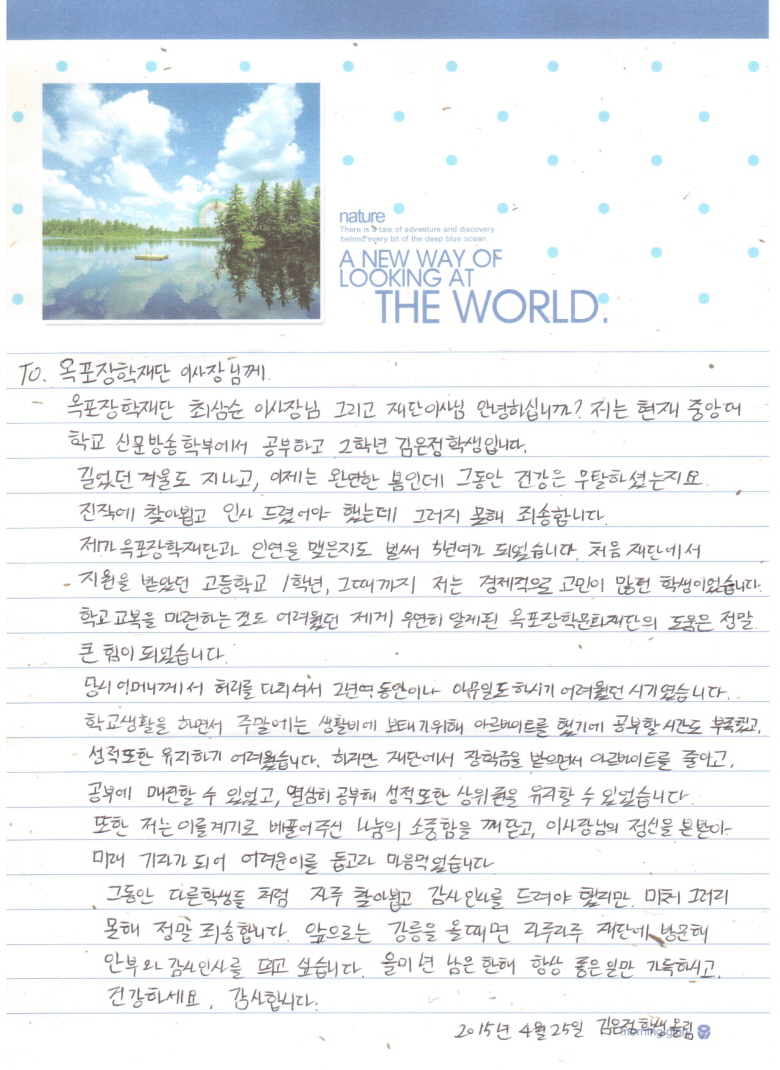 nature
There is a tale of adventure and discovery
behind every bit of the deep blue ocean.
A NEW WAY OF
LOOKING AT
THE WORLD.
TO. 옥포장학재단 이사장님께.
옥포장학재단 최삼순 이사장님 그리고 재단이사님 안녕하십니까? 저는 현재 중앙대
학교 신문방송학부에서 공부하고 2학년 김은정학생입니다.
길었던 겨울도 지나고, 이제는 완연한 봄인데 그동안 건강은 무탈하셨는지요.
진작에 찾아뵙고 인사 드렸어야 했는데 그러지 못해 죄송합니다.
제가 옥포장학재단과 인연을 맺은지도 벌써 5년여가 되었습니다. 처음 재단에서
지원을 받았던 고등학교 1학년, 그때까지 저는 경제적으로 고민이 많던 학생이었습니다.
학교 교복을 마련하는것도 어려웠던 제게 우연히 알게된 옥포장학문화재단의 도움은 정말
큰 힘이 되었습니다.
당시 어머니께서 허리를 다치셔서 2년여동안이나 아무일도하시기 어려웠던 시기였습니다.
학교생활을 하면서 주말에는 생활비에 보태기위해 아르바이트를 했기에 공부할시간도 부족했고,
성적또한 유지하기 어려웠습니다. 하지만 재단에서 장학금을 받으면서 아르바이트를 줄이고,
공부에 매진할 수 있었고, 열심히 공부해 성적또한 상위권을 유지할 수 있었습니다.
또한 저는 이를계기로 베풀어주신 나눔의 소중함을 깨닫고, 이사장님의 정신을 본받아
미래 기자가 되어 어려운이를 돕고자 마음먹었습니다
그동안 다른학생들 처럼 자주 찾아뵙고 감사인사를 드려야 했지만, 미처 그러지
못해 정말 죄송합니다. 앞으로는 강릉을 올때면 자주자주 재단에 방문해
안부와 감사인사를 드리고 싶습니다. 을미년 남은한해 항상 좋은일만 가득하시고,
건강하세요. 감사합니다.
2015년 4월 25일 김은정학생올림
morning glory